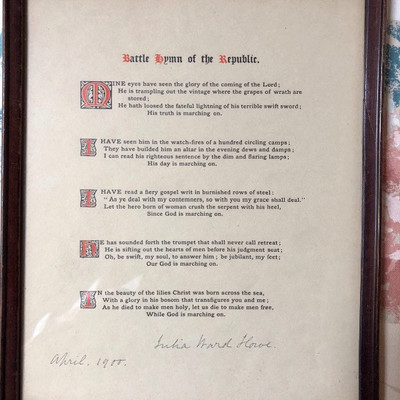 Battle Hymn of the Republic.
MINE eyes have seen the glory of the coming of the Lord;
He is trampling out the vintage where the grapes of wrath are
stored;
He hath loosed the fateful lightning of his terrible swift sword;
His truth is marching on.
I HAVE seen him in the watch-fires of a hundred circling camps;
They have builded him an altar in the evening dews and damps;
I can read his righteous sentence by the dim and flaring lamps;
His day is marching on.
I HAVE read a fiery gospel writ in burnished rows of steel;
"As ye deal with my contemners, so with you my grace shall deal."
Let the hero born of woman crush the serpent with his heel,
Since God is marching on.
HE has sounded forth the trumpet that shall never call retreat;
He is sifting out the hearts of men before his judgment seat;
Oh, be swift, my soul, to answer him; be jubilant, my feet;
Our God is marching on.
IN the beauty of the lilies Christ was born across the sea,
With a glory in his bosom that transfigures you and me;
As he died to make men holy, let us die to make men free,
While God is marching on.
Julia Ward Howe.
April. 1900.